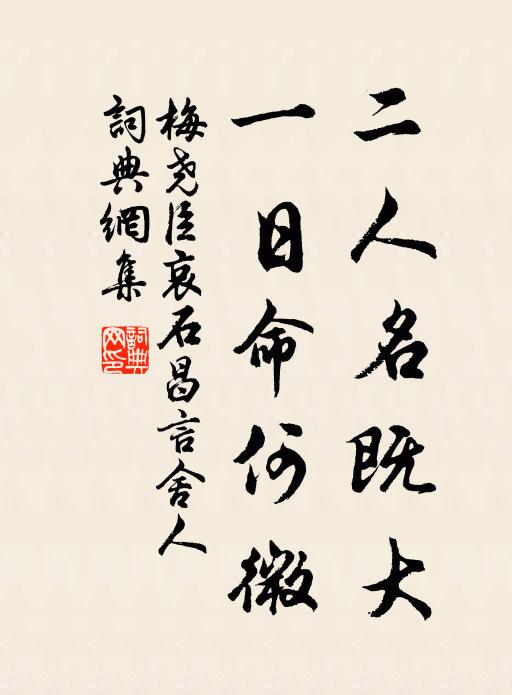 二人名既大
一日命何微
梅尧臣哀石昌言舍人
詞典網集
詞典网印